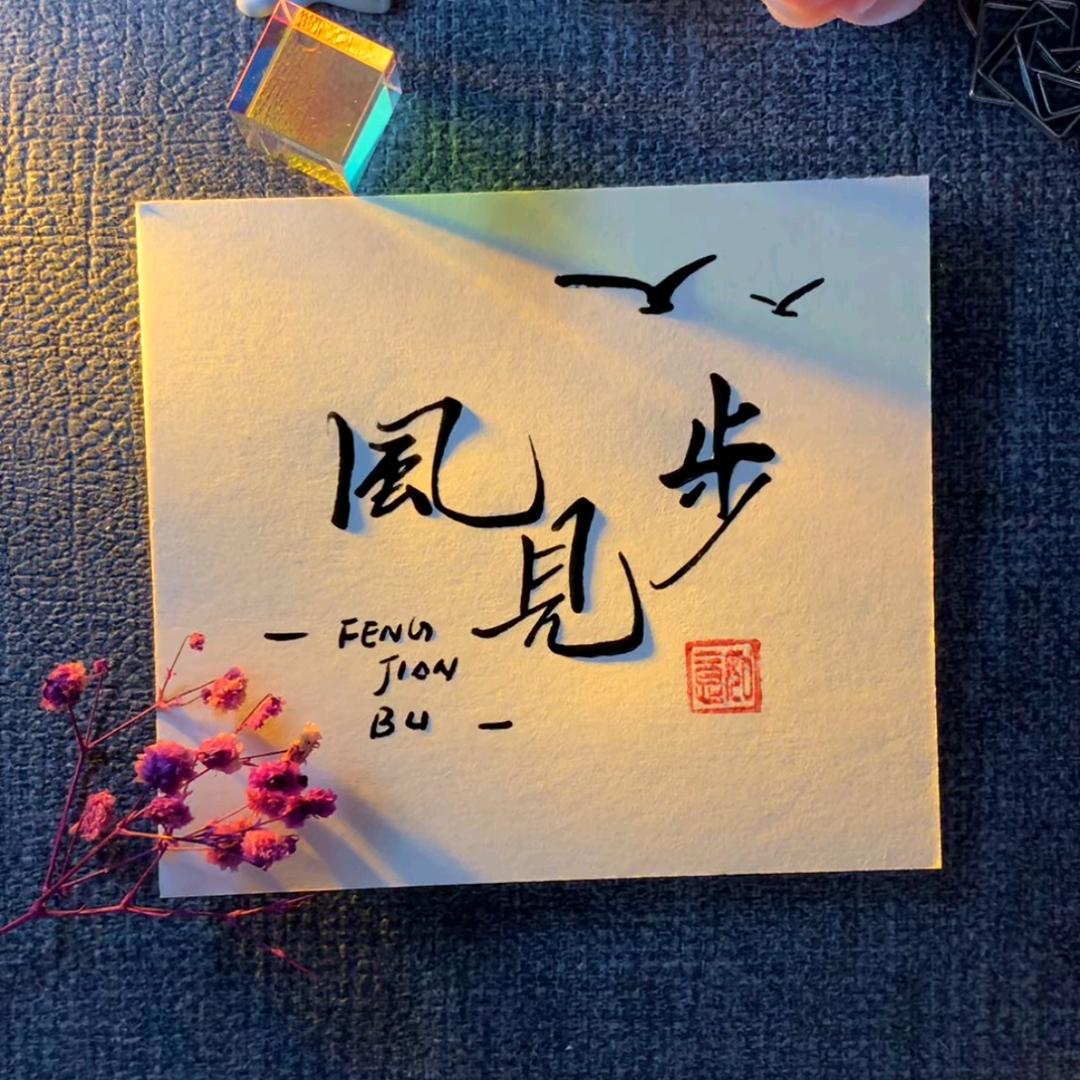 風見步
— FENG
JIAN
BU —